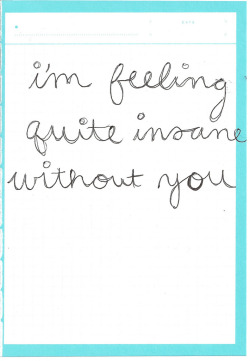 i'm feeling
quite insane
without you